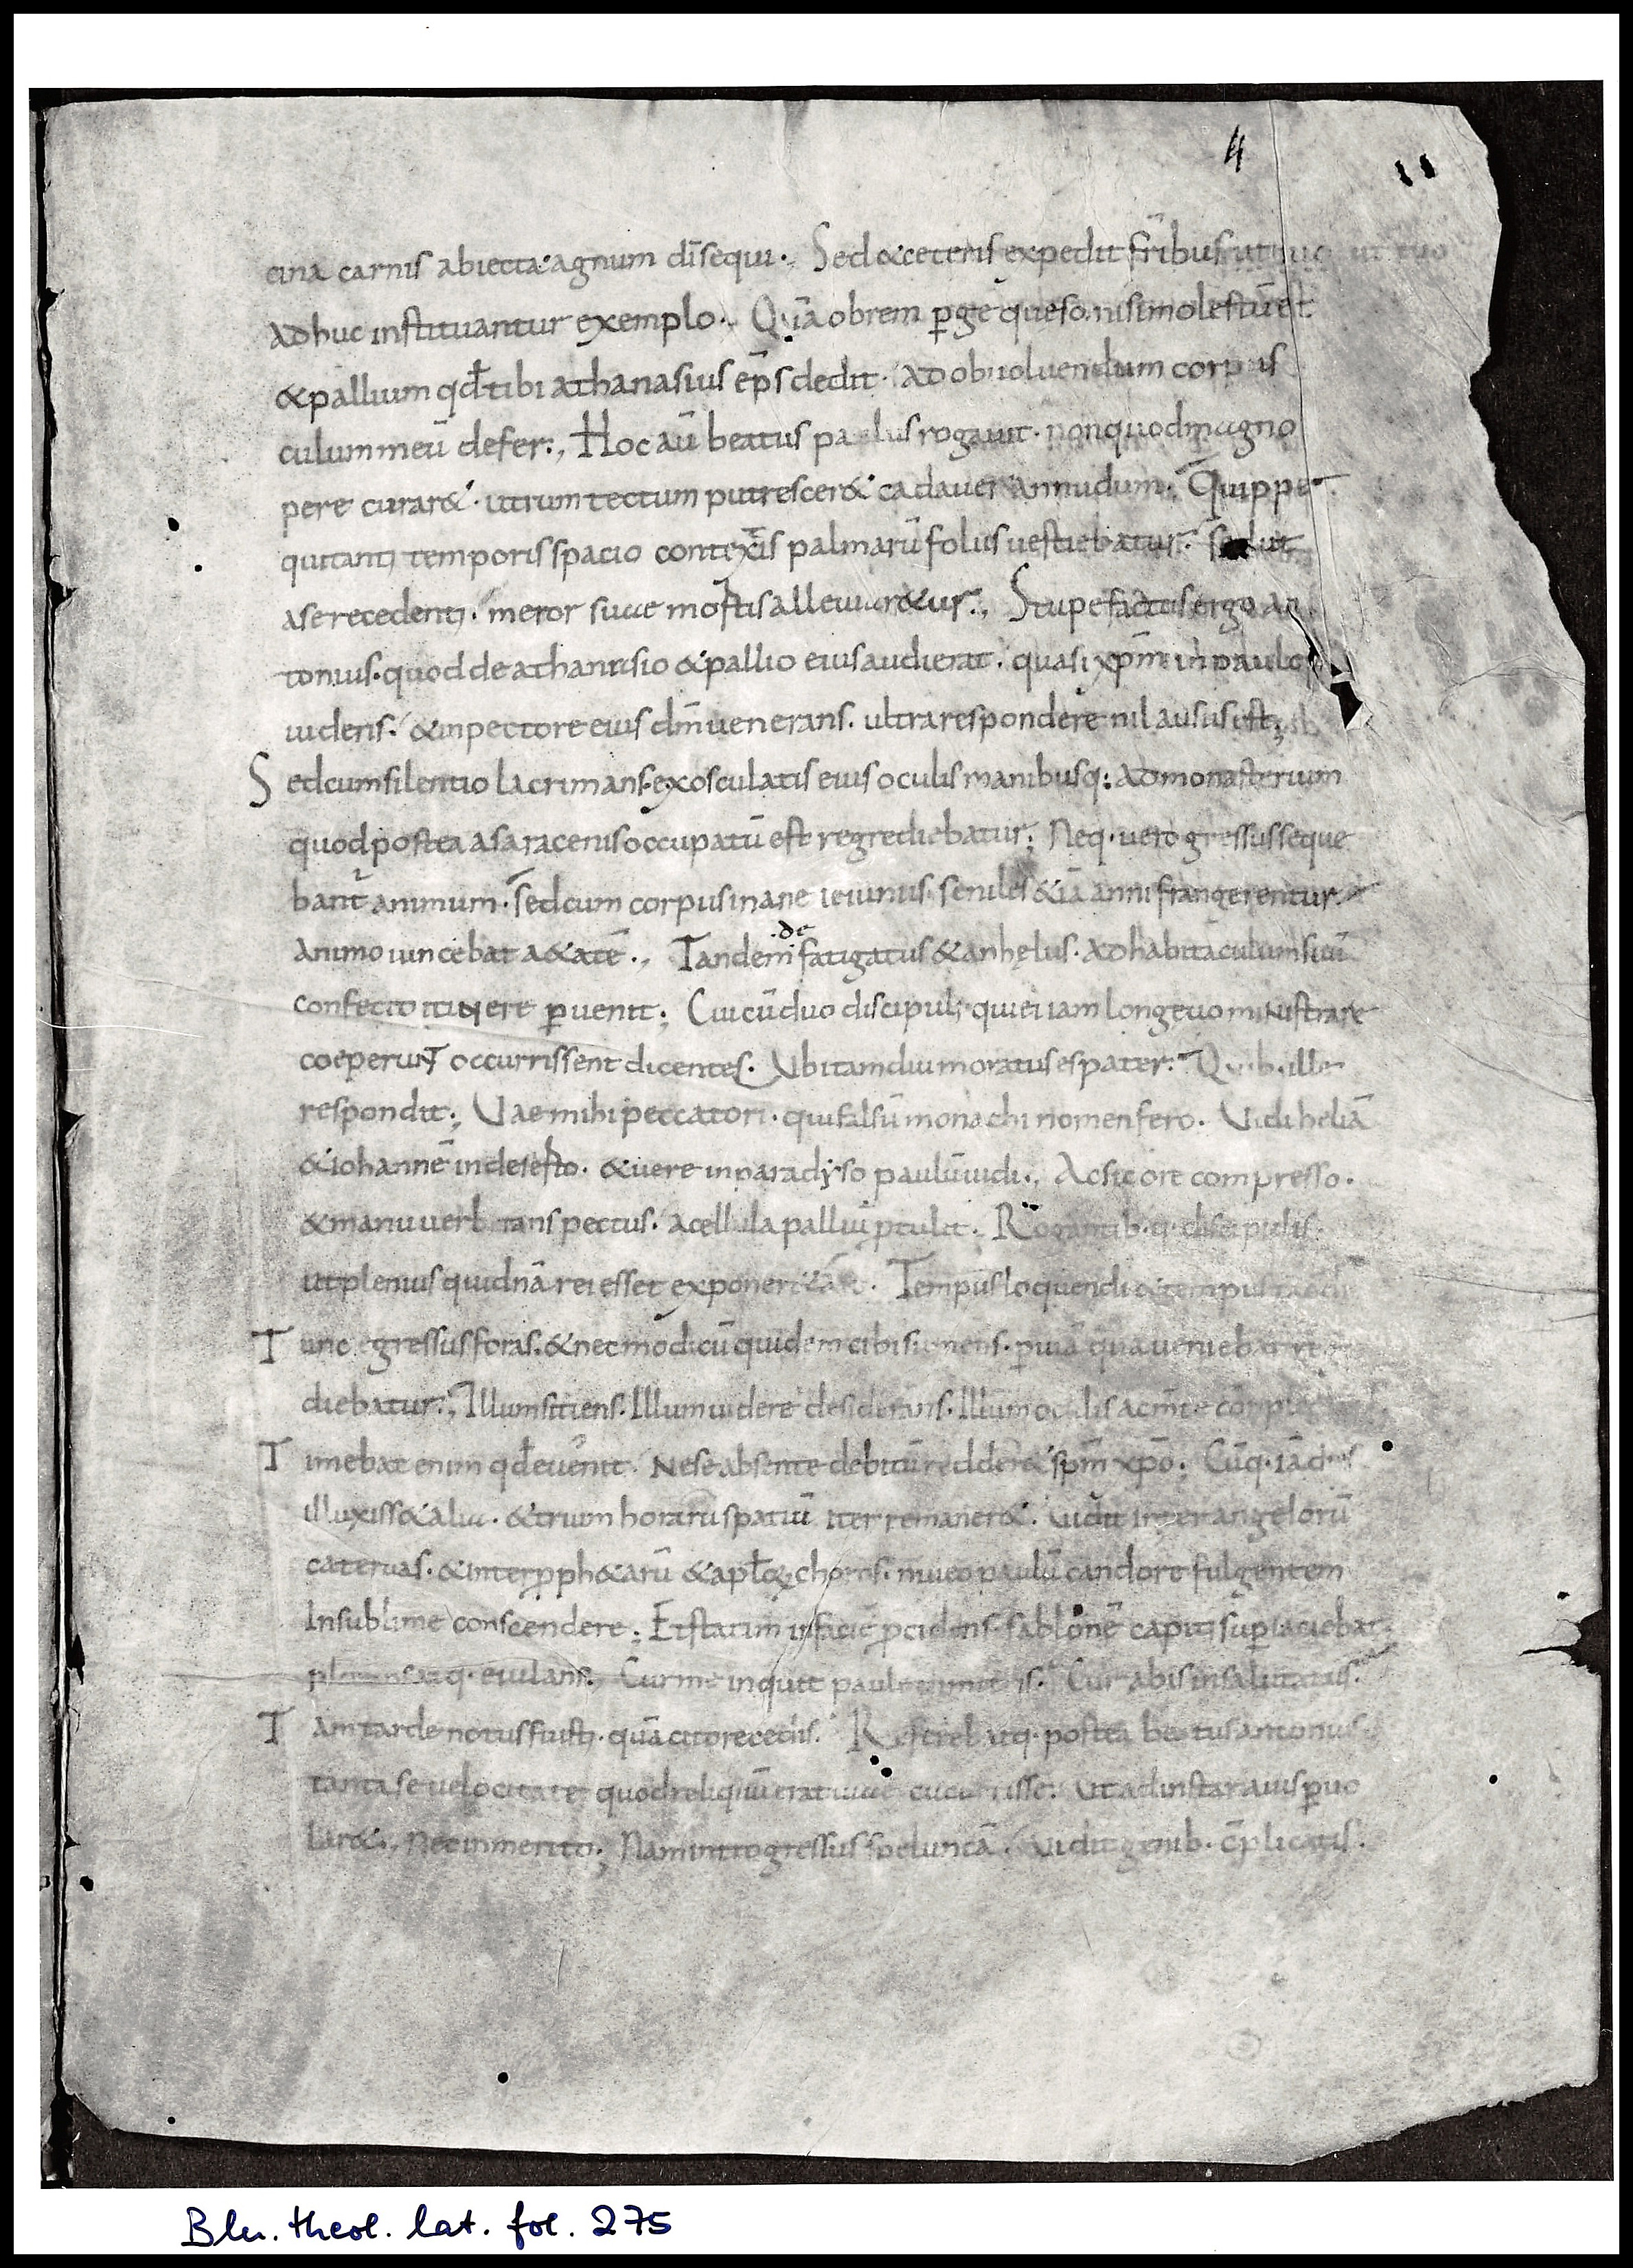 4
11
cina carnis abiecta agnum dī sequi. Sed & ceteris expedit frībus ut tuo
adhuc instituantur exemplo. Quā obrem ꝑge queso nisi molestū est
& pallium qđ tibi athanasius ep̄s dedit. ad obuoluendum corpus
culum meū defer; Hoc aū beatus paulus rogauit. non quod magno
pere curar&. utrum tectum putrescer& cadauer an nudum. Quippe
qui tanti temporis spacio contextis palmarū foliis uestiebatur. sed ut
a se recedenti. meror suae mortis alleuiar&ur. Stupefactus ergo an
tonius. quod de athanasio & pallio eius audierat. quasi xp̄m in paulo
uidens. & in pectore eius dm̄ uenerans. ultra respondere nil ausus est;
Sed cum silentio lacrimans. exosculatis eius oculis manibusq: ad monasterium
quod postea a saracenis occupatū est regrediebatur; Neq. uero gressus seque
bant animum. sed cum corpus inane ieiuniis. seniles &iā anni frangerentur.
animo uincebat a&atē. Tandem defatigatus & anhęlus. ad habitaculum suū
confecto itinere ꝑuenit; Cui cū duo discipuli qui ei iam longeuo ministrare
coeperunt occurrissent dicentes. Ubi tamdiu moratus es pater. Quib. ille
respondit; Vae mihi peccatori. qui falsū monachi nomen fero. Vidi heliā
& iohannē in deserto. & uere in paradyso paulū uidi. Ac sic ore compresso.
& manu uerberans pectus. a cellula palliū ꝓtulit. Rogantib. q; discipulis.
ut plenius quidnā rei esset exponer& Tempus loquendi & tempus tacendi
Tunc egressus foras. & nec modicū quidem cibi sumens. ꝑ uiā qua ueniebat re
diebatur. Illum sitiens. Illum uidere desiderans. Illum oculis ac m̄te complec
Timebat enim qđ euēnit. Ne se absente debitū redder& sp̄m xp̄o; Cūq. iā dies
illuxiss& alia. & trium horarū spatiū iter remaner&. uidit inter angelorū
cateruas. & inter ꝓph&arū & apl̄oꝝ choros. niueo paulū candore fulgentem
In sublime conscendere; Et statim in faciē ꝓcidens. sablonē capiti suꝑiaciebat
plorans atq. eiulans. Cur me inquit paule dimittis. Cur abis insalutatus.
Tam tarde notus fuisti. quā cito recedis. Referebatq. postea beatus antonius
tanta se uelocitate quod reliquū erat uiae cucurrisse. Ut ad instar auis ꝑuo
lar&. Nec inmerito; Nam introgressus speluncā. Uidit genib. cōplicatis.
Bln. theol. lat. fol. 275